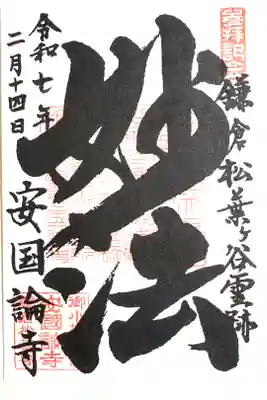 登拝記念
鎌倉松葉ヶ谷霊跡
妙法
安国論寺
令和七年
二月十四日